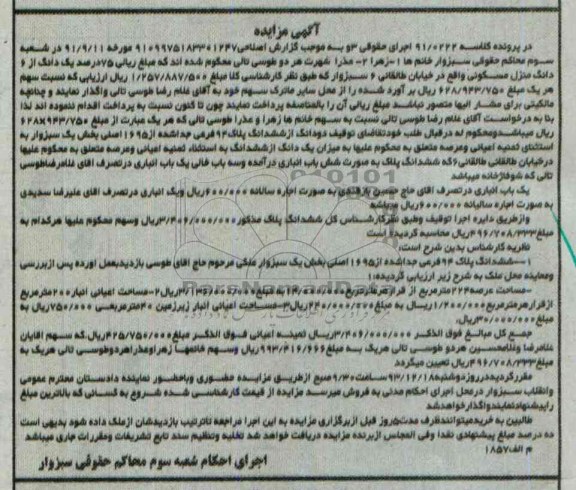 آگهی مزایده
در پرونده کلاسه ۹۱/۰۲۲۲ اجرای حقوقی ۳و به موجب گزارش اصلاحی ۹۱۰۹۹۷۵۱۸۳۳۰۱۲۴۷ مورخه ۹۱/۹/۱۱ در شعبه
سوم محاکم حقوقی سبزوار خانم ها ۱-زهرا ۲- عذرا شهرت هر دو طوسی تالی محکوم شده اند که مبلغ ریالی ۷۵درصد یک دانگ از ۶
دانگ منزل مسکونی واقع در خیابان طالقانی ۶ سبزوار که طبق نظر کارشناسی کلا مبلغ ۱/۲۵۷/۸۸۷/۵۰۰ ریال ارزیابی که نسبت سهم
هر یک مبلغ ۶۲۸/۹۴۳/۷۵۰ ریال بر آورد شده را از محل سایر ماترک سهم خود به آقای غلام رضا طوسی تالی واگذار نمایند و چنانچه
مالکیتی برای مشار الیها متصور نباشد مبلغ ریالی آن را بالمناصفه پرداخت نمایند چون تا کنون نسبت به پرداخت اقدام ننموده اند لذا
بنا به درخواست آقای غلام رضا طوسی تالی نسبت به سهم خانم ها زهرا و عذرا طوسی تالی که هر یک عبارت از مبلغ ۶۲۸۹۴۳/۷۵۰
ریال میباشدومحکوم له درقبال طلب خودتقاضای توقیف دودانگ ازششدانگ پلاک۹۴فرعی جداشده از۱۶۹۵ اصلی بخش یک سبزوار به
استثنای ثمنیه اعیانی وعرصه متعلق به محکوم علیها به میزان یک دانگ ازششدانگ به استثناء ثمنیه اعیانی وعرصه متعلق به محکوم علیها
درخیابان طالقانی طالقانی ۶که ششدانگ پلاک به صورت شش باب انباری درآمده وسه باب خالی یک باب انباری درتصرف اقای غلامرضاطوسی
تالی که شوفاژخانه میباشد
یک باب انباری درتصرف اقای حاج حسین بازقندی به صورت اجاره سالانه ۶۰۰/۰۰۰ریال ویک انباری درتصرف اقای علیرضا سدیدی
به صورت اجاره سالیانه ۶۰۰/۰۰۰ریال میباشد
وازطریق دایره اجرا توقیف وطبق نظرکارشناس کل ششدانگ پلاک مذکور۳/۴۰۶/۰۰۰/۰۰۰ریال وسهم محکوم علیها هرکدام به
مبلغ۴۹۶/۷۰۸/۳۳۳ریال محاسبه گردیده است
نظریه کارشناس بدین شرح است:
۱-ششدانگ پلاک ۹۴فرعی جداشده از۱۶۹۵ اصلی بخش یک سبزوار ملکی مرحوم حاج اقای طوسی بازدیدبعمل اورده پس ازبررسی
ومعاینه محل ملک به شرح زیر ارزیابی گردیده:
-مساحت عرصه۲۲۴مترمربع از قرارهرمترمربع
ازقرارهرمترمربع۱/۲۰۰/۰۰۰ریال به مبلغ۲۴۰/۰۰۰/۰۰۰ریال۳-مساحت اعیانی انبار زیرزمین ۴۰مترمربعی ۷۵۰/۰۰۰ریال به
مبلغ۳۰/۰۰۰/۰۰۰ریال.
جمع کل مبالغ فوق الذکر ۳/۴۰۶/۰۰۰/۰۰۰ریال ثمینه اعیانی فوق الذکر مبلغ۴۲۵/۷۵۰/۰۰۰ریال.که سهم اقایان
غلامرضا وغلامحسین هردو طوسی تالی هریک به مبلغ۹۹۳/۴۱۶/۶۶۶ریال وسهم خانمها زهراوعذراهردوطوسی تالی هریک به
مبلغ۴۹۶/۷۰۸/۳۳۳ریال تعیین میگردد
مقررگردیده درروزدوشنبه۹۳/۱۲/۱۸ساعت۹/۳۰صبح ازطریق مزایده حضوری وباحضور نماینده دادستان محترم عمومی
وانقلاب سبزوار درمحل اجرای احکام مدنی به فروش میرسد مزایده از قیمت کارشناسی شده شروع به کسانی که بالاترین مبلغ
راپیشنهادنمایندواگذارخواهدشد
طالبین به خریدمیتوانندظرف مدت۵روز قبل ازبرگزاری مزایده به این اجرا مراجعه تاترتیب بازدیدشان ازملک داده شود بدیهی است
ده درصد مبلغ پیشنهادی نقدا وفی المجلس ازبرنده مزایده دریافت خواهد شد تخلیه وتنظیم سند تابع تشریفات ومقررات جاری میباشد
م الف۱۸۵۷
اجرای احکام شعبه سوم محاکم حقوقی سبزوار